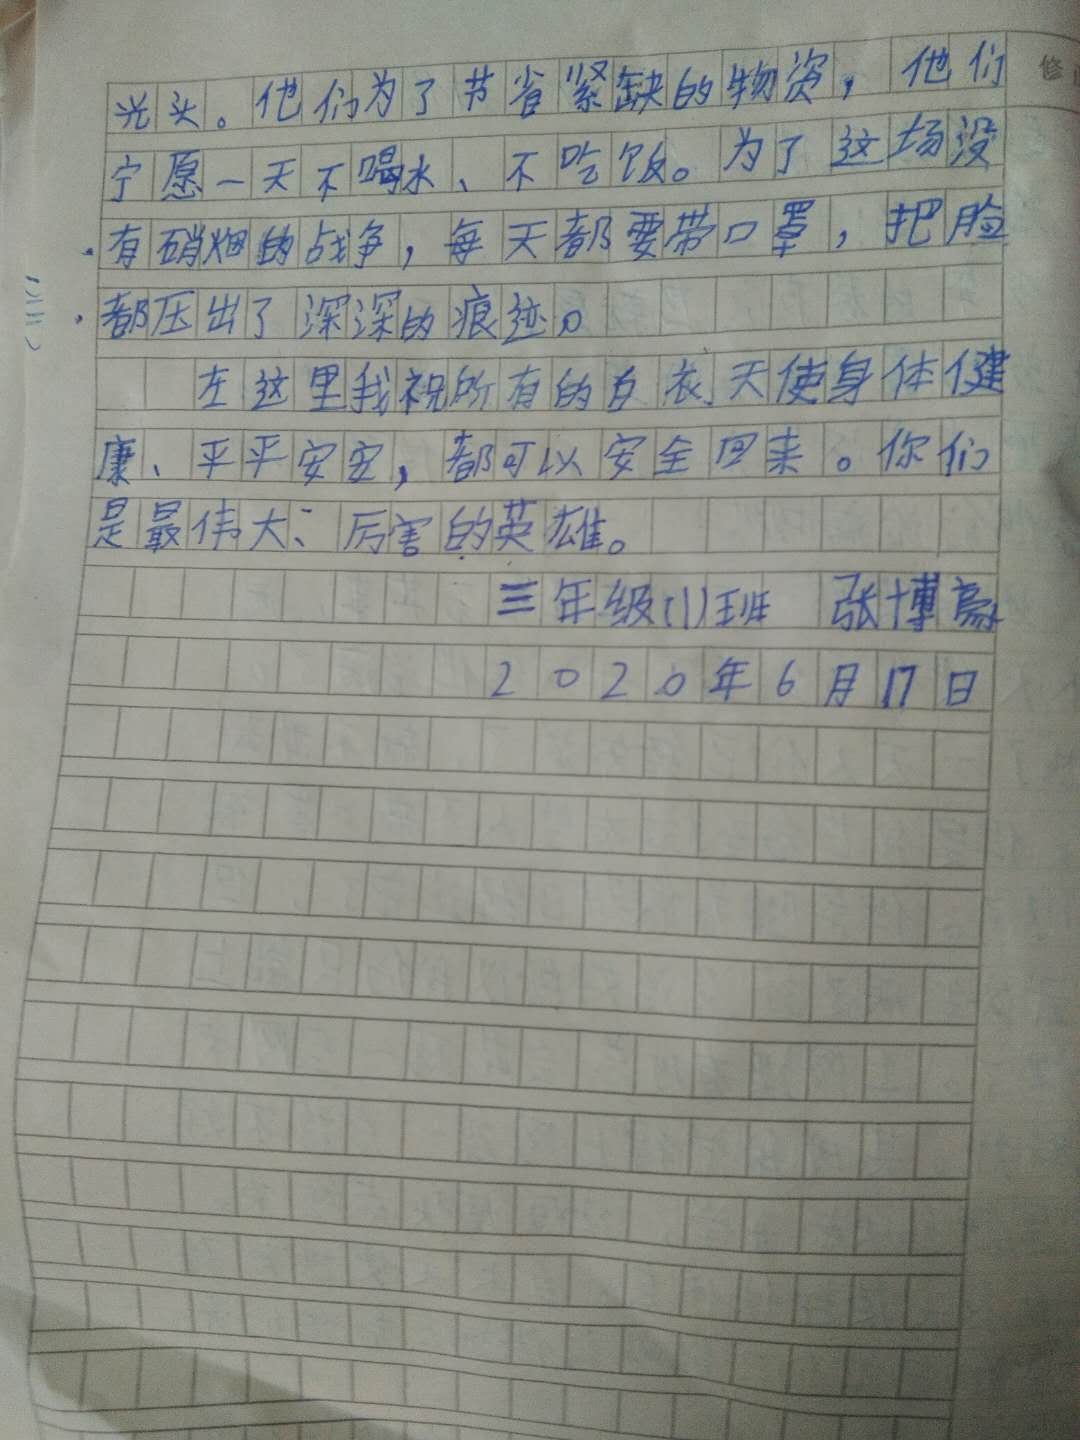 光头。他们为了节省紧缺的物资，他们
宁愿一天不喝水、不吃饭。为了这场没
有硝烟的战争，每天都要带口罩，把脸
都压出了深深的痕迹。
在这里我祝所有的白衣天使身体健
康、平平安安，都可以安全回来。你们
是最伟大、厉害的英雄。
三年级(1)班 张博豪
2020年6月17日
修